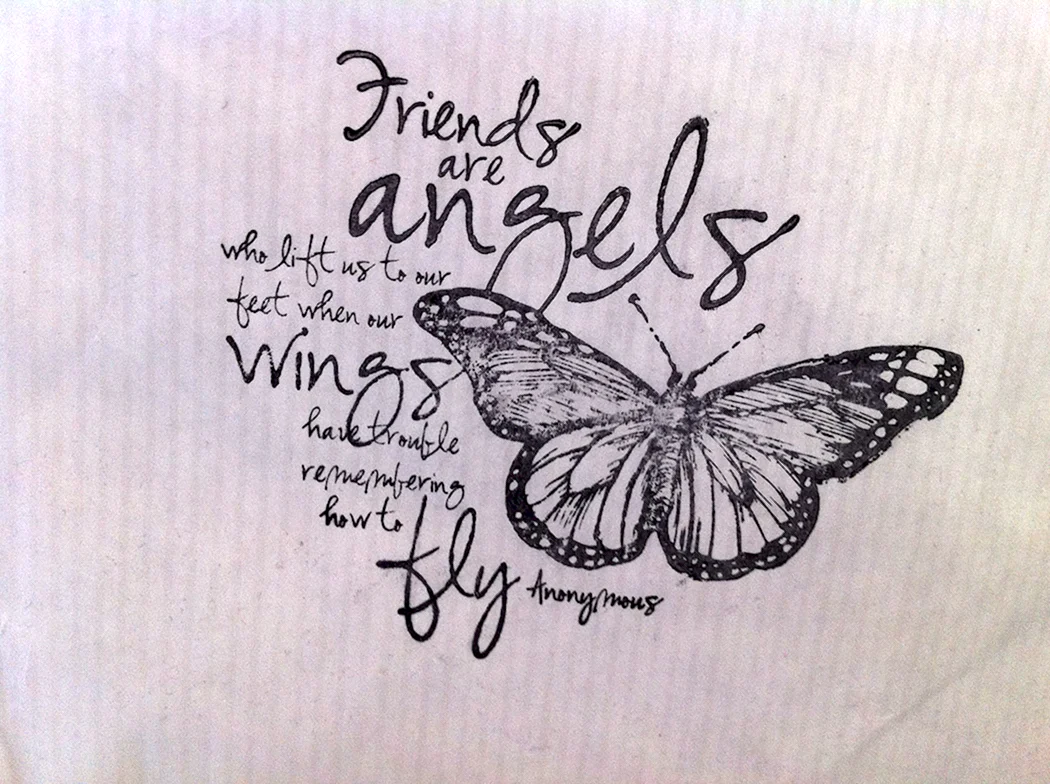 Friends
are
angels
who lift us to our
feet when our
wings
have trouble
remembering
how to
fly
Anonymous